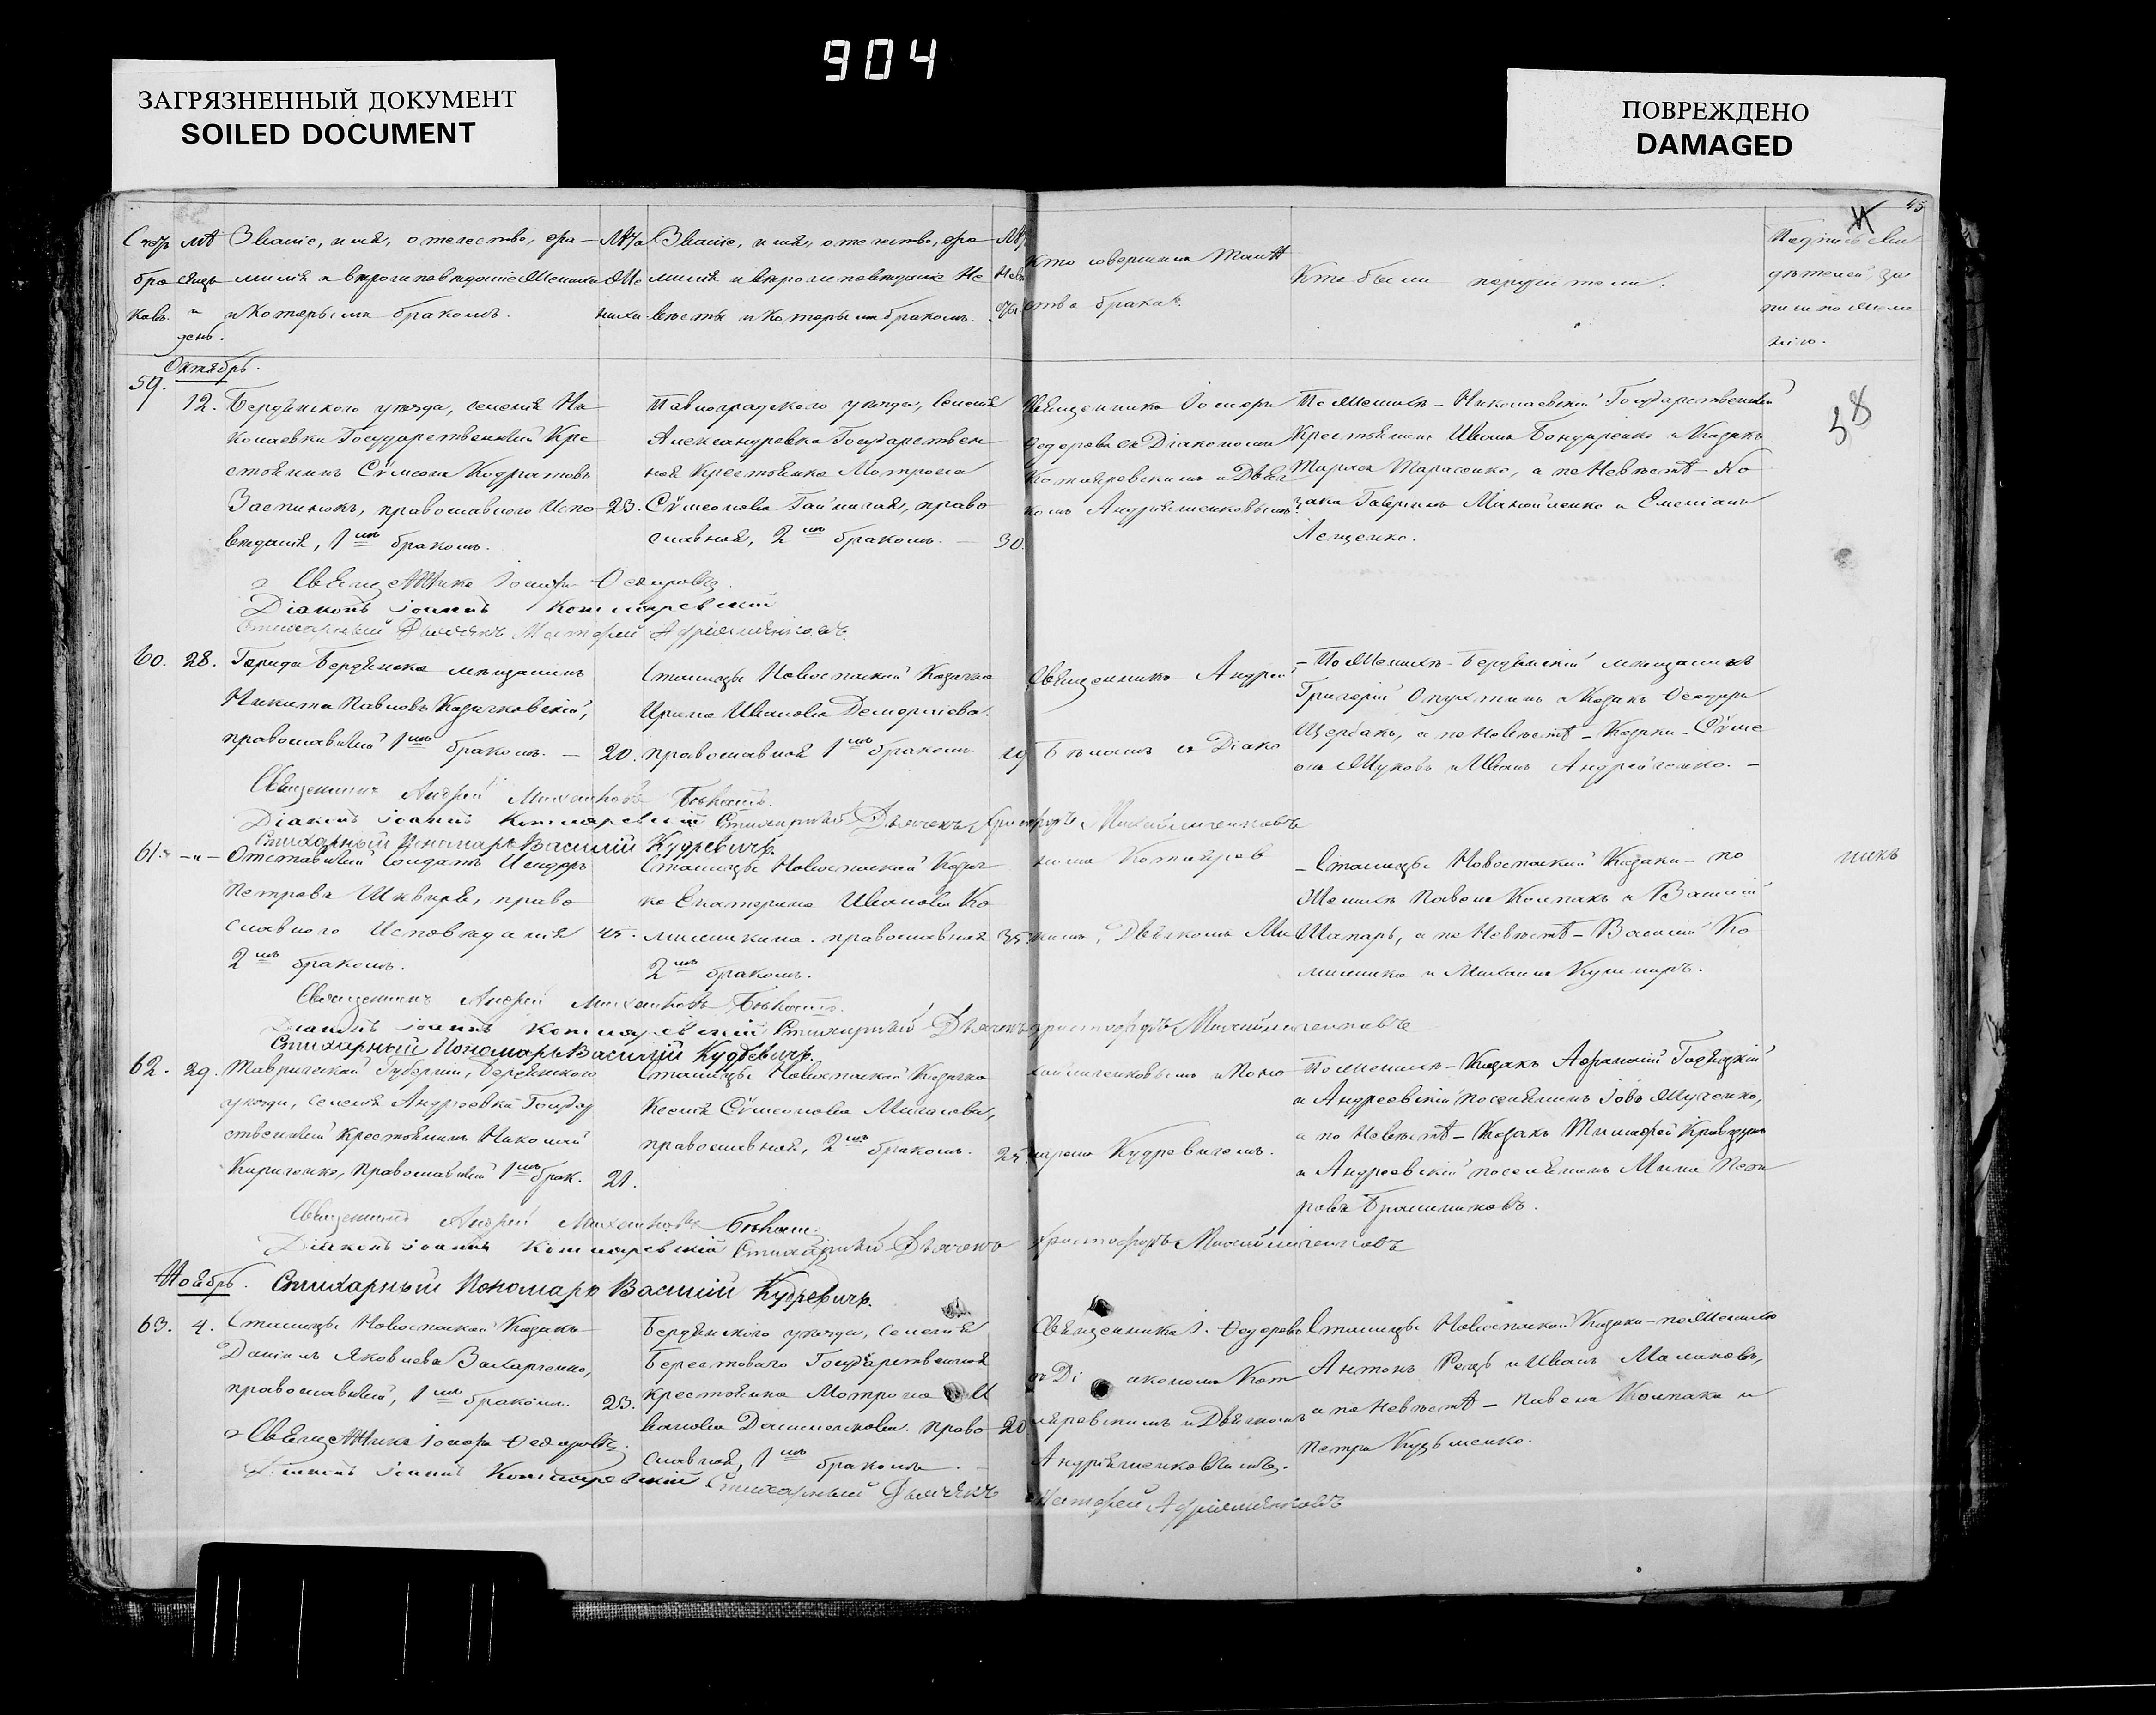 904
ЗАГРЯЗНЕННЫЙ ДОКУМЕНТ
SOILED DOCUMENT
ПОВРЕЖДЕНО
DAMAGED
45
Званіе, имя, отечество, фа-
милія и вѣроисповѣданіе Жениха
и Которымъ бракомъ.
день.
Званіе, имя, отечество, фа-
милія и вѣроисповѣданіе Не
вѣсты и Которымъ бракомъ.
Кто совершилъ Таин
ства брака.
Кто были поручители.
Подпись сви
дѣтелей за
писи по жела
нію.
Октябрь.
59.
12. Бердянского уѣзда, селенія Ни
колаевки Государственный Кре
стьянинъ Сѵмеонъ Кодратовъ
православного Испо 23.
вѣданія, 1мъ бракомъ.
Павлоградского уѣзда, Селенія
Александровка Государствен
ная Крестьянка Матрона
Сѵмеонова Гайдукая, право
славная, 2мъ бракомъ. — 30.
Священникъ Іосифъ
Федоровъ съ Діакономъ
Котляревскимъ и Дьяч
комъ Андріяшенковымъ.
По Женихѣ - Николаевскій Государственный
Крестьянинъ Иванъ Бондаренко и Козакъ
Тарасъ Тарасенко, а по Невѣстѣ - Ко
заки Гавріилъ Манойленко и Емеліанъ
Лещенко.
38
Священникъ Іосифъ Федоровъ
Діаконъ Іоаннъ Котляревскій
Стихарный Дьячекъ Матфей Андріяшенковъ.
60. 28. Города Бердянска мѣщанинъ
Никита Павловъ Козачковскій,
православный 1мъ бракомъ. — 20.
Станицы Новоспаской Козачка
Ирина Иванова
православная 1мъ бракомъ. 19
Священникъ Андрей
Бѣлашъ съ Діако
- По Женихѣ - Бердянскій мѣщанинъ
Григорій и Козакъ Феодоръ
Щербакъ, а по Невѣстѣ - Козаки - Сѵме
онъ Жуковъ и Иванъ Андрейченко. -
Священникъ Андрей Михайловъ Бѣлашъ.
Діаконъ Іоаннъ Котляревскій Стихарный Дьячекъ Христофоръ Михайличенковъ
Стихарный Пономарь Василій Кудревичъ.
61. -"- Отставный Солдатъ Исидоръ
Петровъ Шквиря, право
славного Исповѣданія 45.
2мъ бракомъ.
Станицы Новоспаской Козач
ка Екатерина Иванова Ко
православная 35.
2мъ бракомъ.
номъ Котляров
скимъ, Дьячкомъ Ми
- Станицы Новоспаской Козаки - по
Женихѣ Павелъ Колпакъ и Василій
Шапарь, а по Невѣстѣ - Василій Ко
и Михаилъ Кушниръ.
Священникъ Андрей Михайловъ Бѣлашъ.
Діаконъ Іоаннъ Котляревскій Стихарный Дьячекъ Христофоръ Михайличенковъ
Стихарный Пономарь Василій Кудревичъ.
62. 29. Таврической Губерніи, Бердянского
уѣзда, селенія Андреевки Государ
ственный крестьянинъ Николай
Кириченко, Православный 1мъ брак. 21.
Станицы Новоспаской Козачка
Ксенія Сѵмеонова
православная, 2мъ бракомъ. 25.
хайличенковымъ и Поно
маремъ Кудревичемъ.
По Женихѣ - Козакъ Афанасій
и Андреевскій поселянинъ Іовъ
а по Невѣстѣ - Козакъ Тимофей
и Андреевскій поселянинъ
Священникъ Андрей Михайловъ Бѣлашъ.
Діаконъ Іоаннъ Котляревскій Стихарный Дьячекъ Христофоръ Михайличенковъ
Ноябрь. Стихарный Пономарь Василій Кудревичъ.
63. 4. Станицы Новоспаской Козакъ
Даніилъ Яковлевъ Захарченко,
православный, 1мъ бракомъ. 23.
Бердянского уѣзда, селенія
Берестоваго Государственная
крестьянка Матрона И
ванова право 20
славная, 1мъ бракомъ.
Священникъ І. Федоровъ
съ Діакономъ Кот
ляревскимъ и Дьячкомъ
Андріяшенковымъ.
Станицы Новоспаской Козаки - по Женихѣ
Антонъ и Иванъ Маликовъ,
а по Невѣстѣ - Павелъ Колпакъ и
Петръ Кузьменко.
Священникъ Іосифъ Федоровъ.
Діаконъ Іоаннъ Котляревскій Стихарный Дьячекъ
Матфей Андріяшенковъ